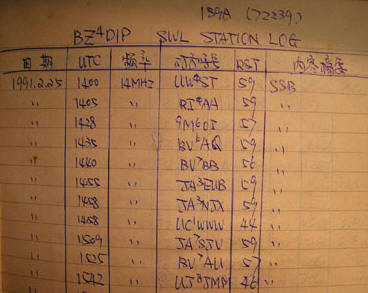 139A (72239)
BZ4DIP SWL STATION LOG
日期 UTC 频率 对方呼号 RST 内容摘要
1991.2.25 1400 14MHz UW9ST 59 SSB
〃 1405 〃 59 〃
〃 1428 〃 9M6OI 57 〃
〃 1435 〃 BV6AQ 59 〃
〃 1440 〃 BV7BB 56 〃
〃 1455 〃 JA3EUB 59 〃
〃 1458 〃 JA3NJX 59 〃
〃 1458 〃 UC1WWW 44 〃
〃 1509 〃 JA7SJV 59 〃
〃 1525 〃 BV7AU 57 〃
〃 1542 〃 UJ8JMM 46 〃